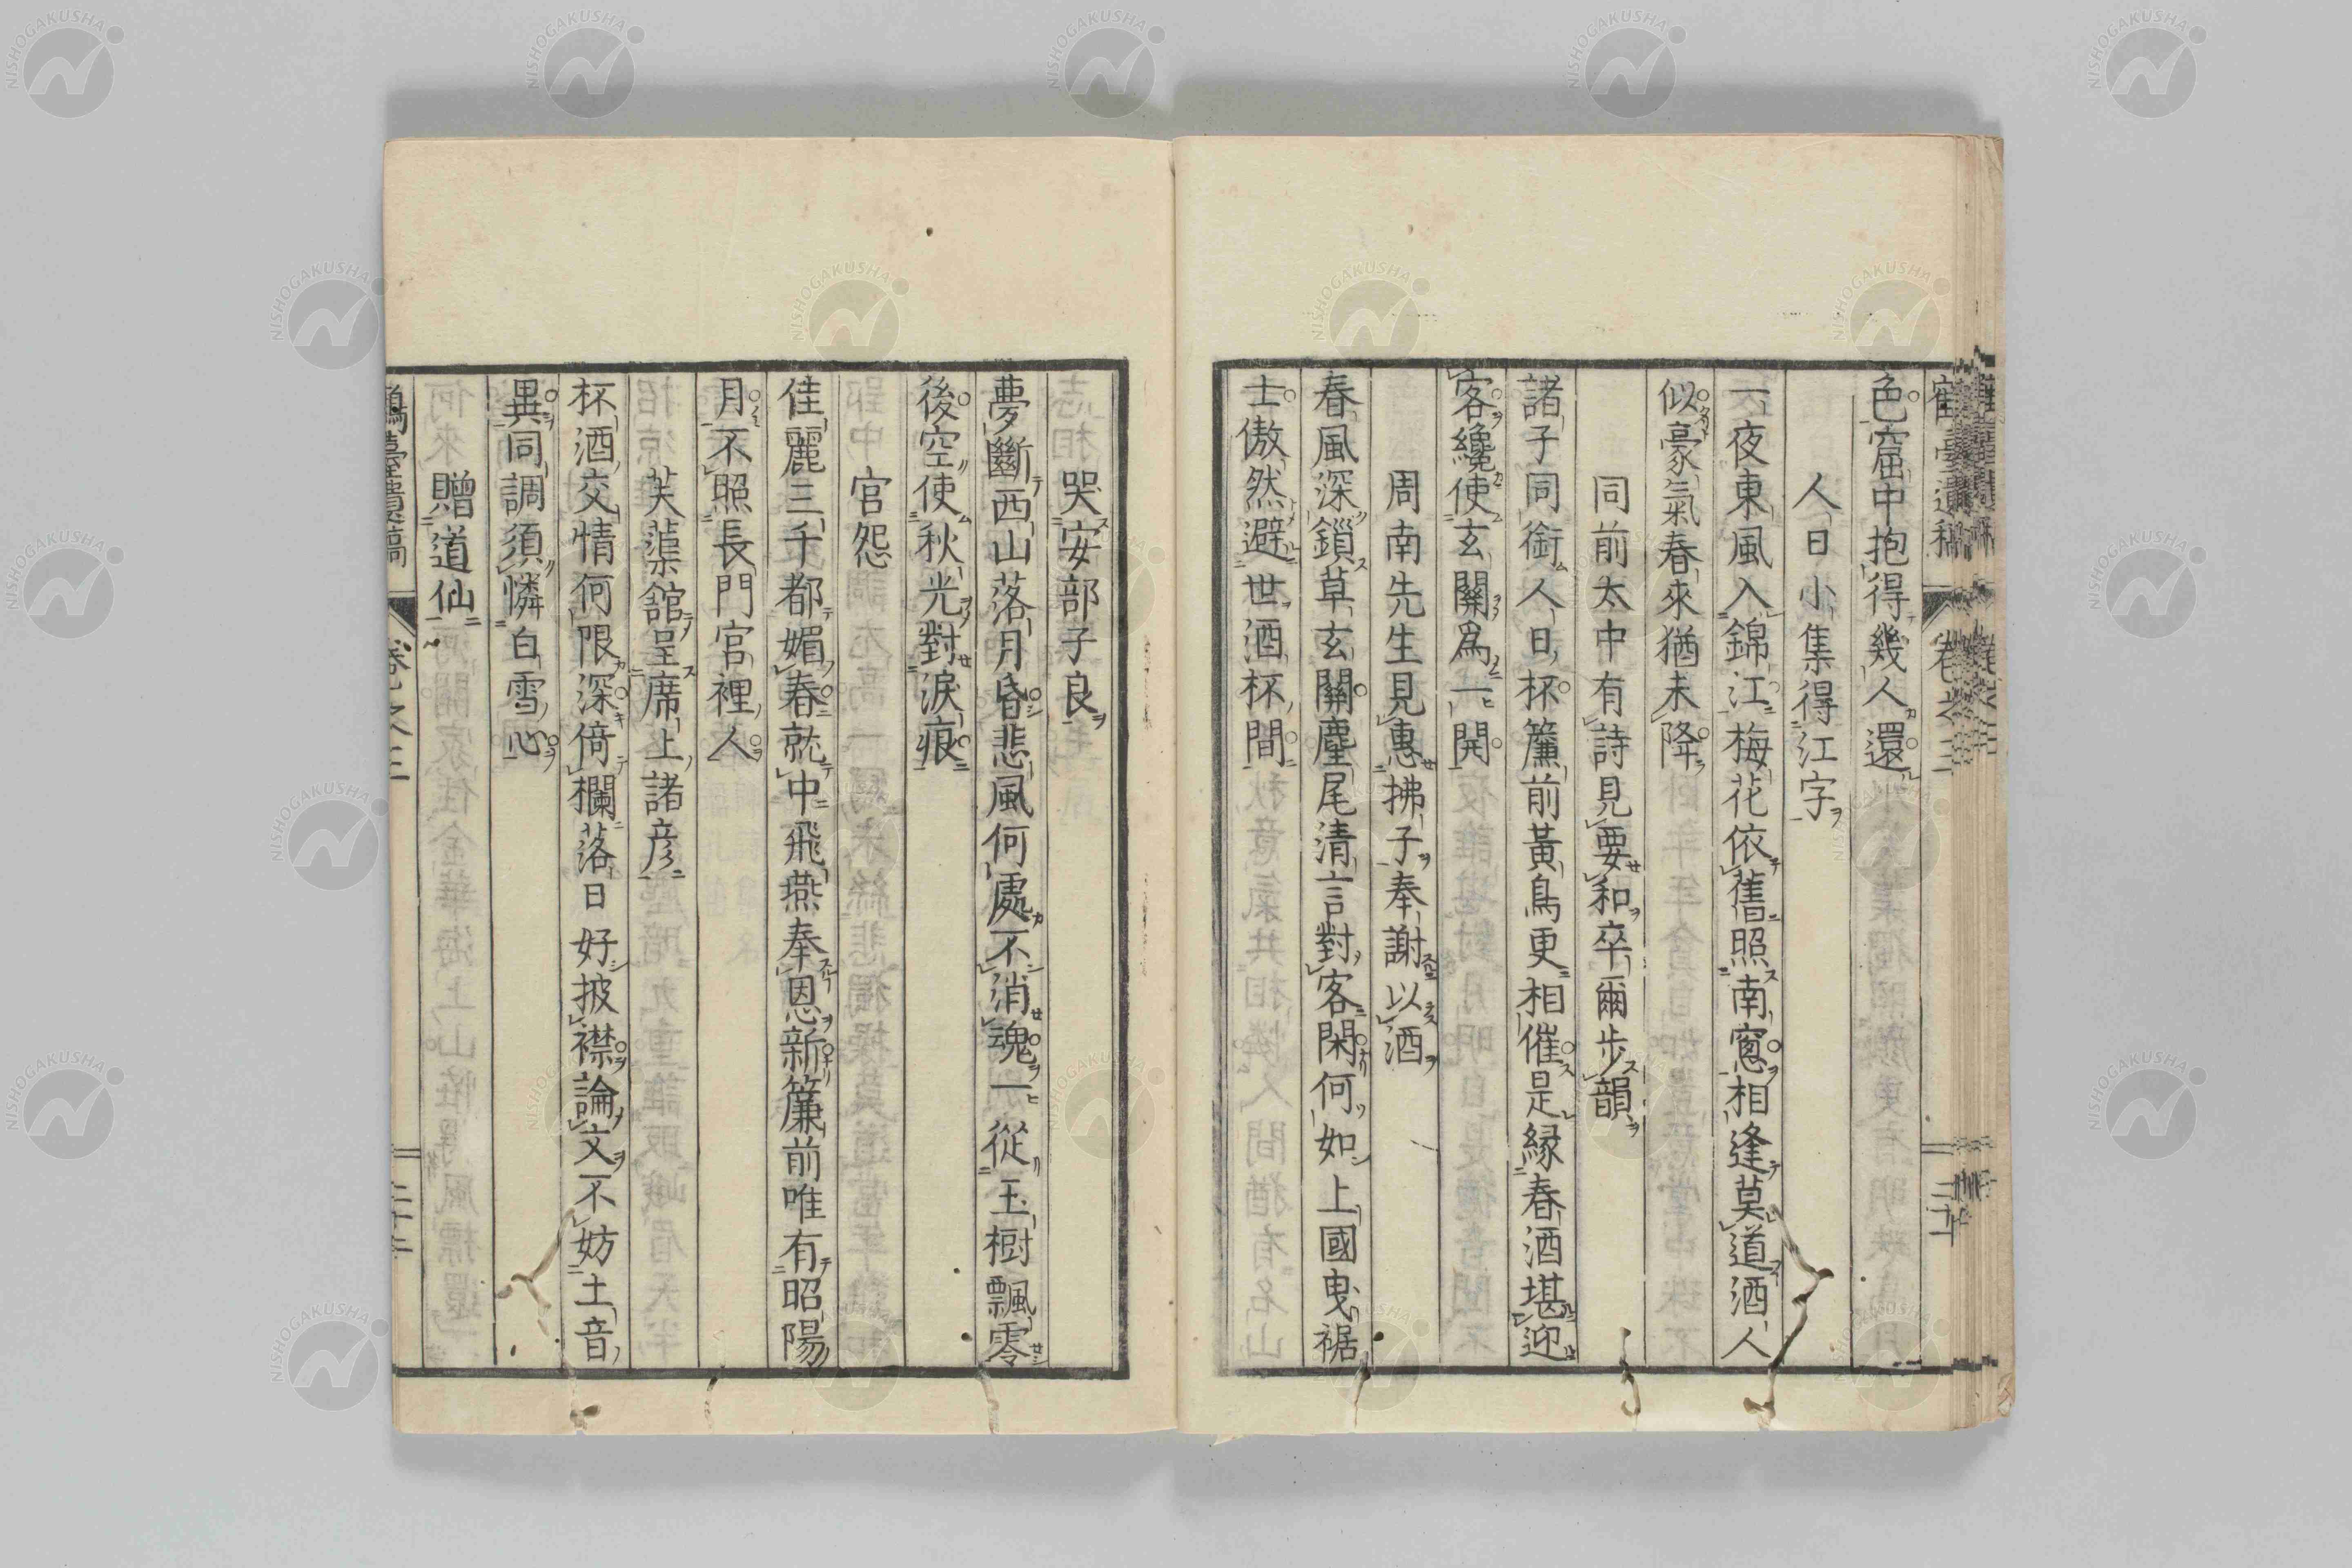 色窟中抱得幾人還
人日小集得江字
一夜東風入錦江梅花依舊照南窓相逢莫道酒人
似豪氣春來猶未降
同前太中有詩見要和卒爾步韻
諸子同銜人日杯簾前黃鳥更相催是緣春酒堪迎
客纔使玄關爲一開
周南先生見惠拂子奉謝以酒
春風深鎖草玄關麈尾清言對客閑何如上國曳裾
士傲然避世酒杯間
卷之三
哭安部子良
夢斷西山落月昏悲風何處不消魂一從玉樹飄零
後空使秋光對淚痕
宮怨
佳麗三千都媚春就中飛燕奉恩新簾前唯有昭陽
月不照長門宮裡人
芙蕖舘呈席上諸彦
杯酒交情何限深倚欄落日好披襟論文不妨土音
異同調須憐白雪心
贈道仙
卷之三
NISHOGAKUSHA